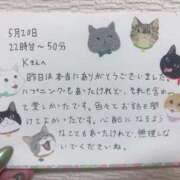 5月20日
22時半〜50分
Kさんへ
昨日は本当にありがとうございました。
ハプニングもあったけれど、それも含め
て楽しかったです。色々とお話も聞
けてよかったです。心配になるよう
なこともあったけれど、無理しな
いでくださいね。